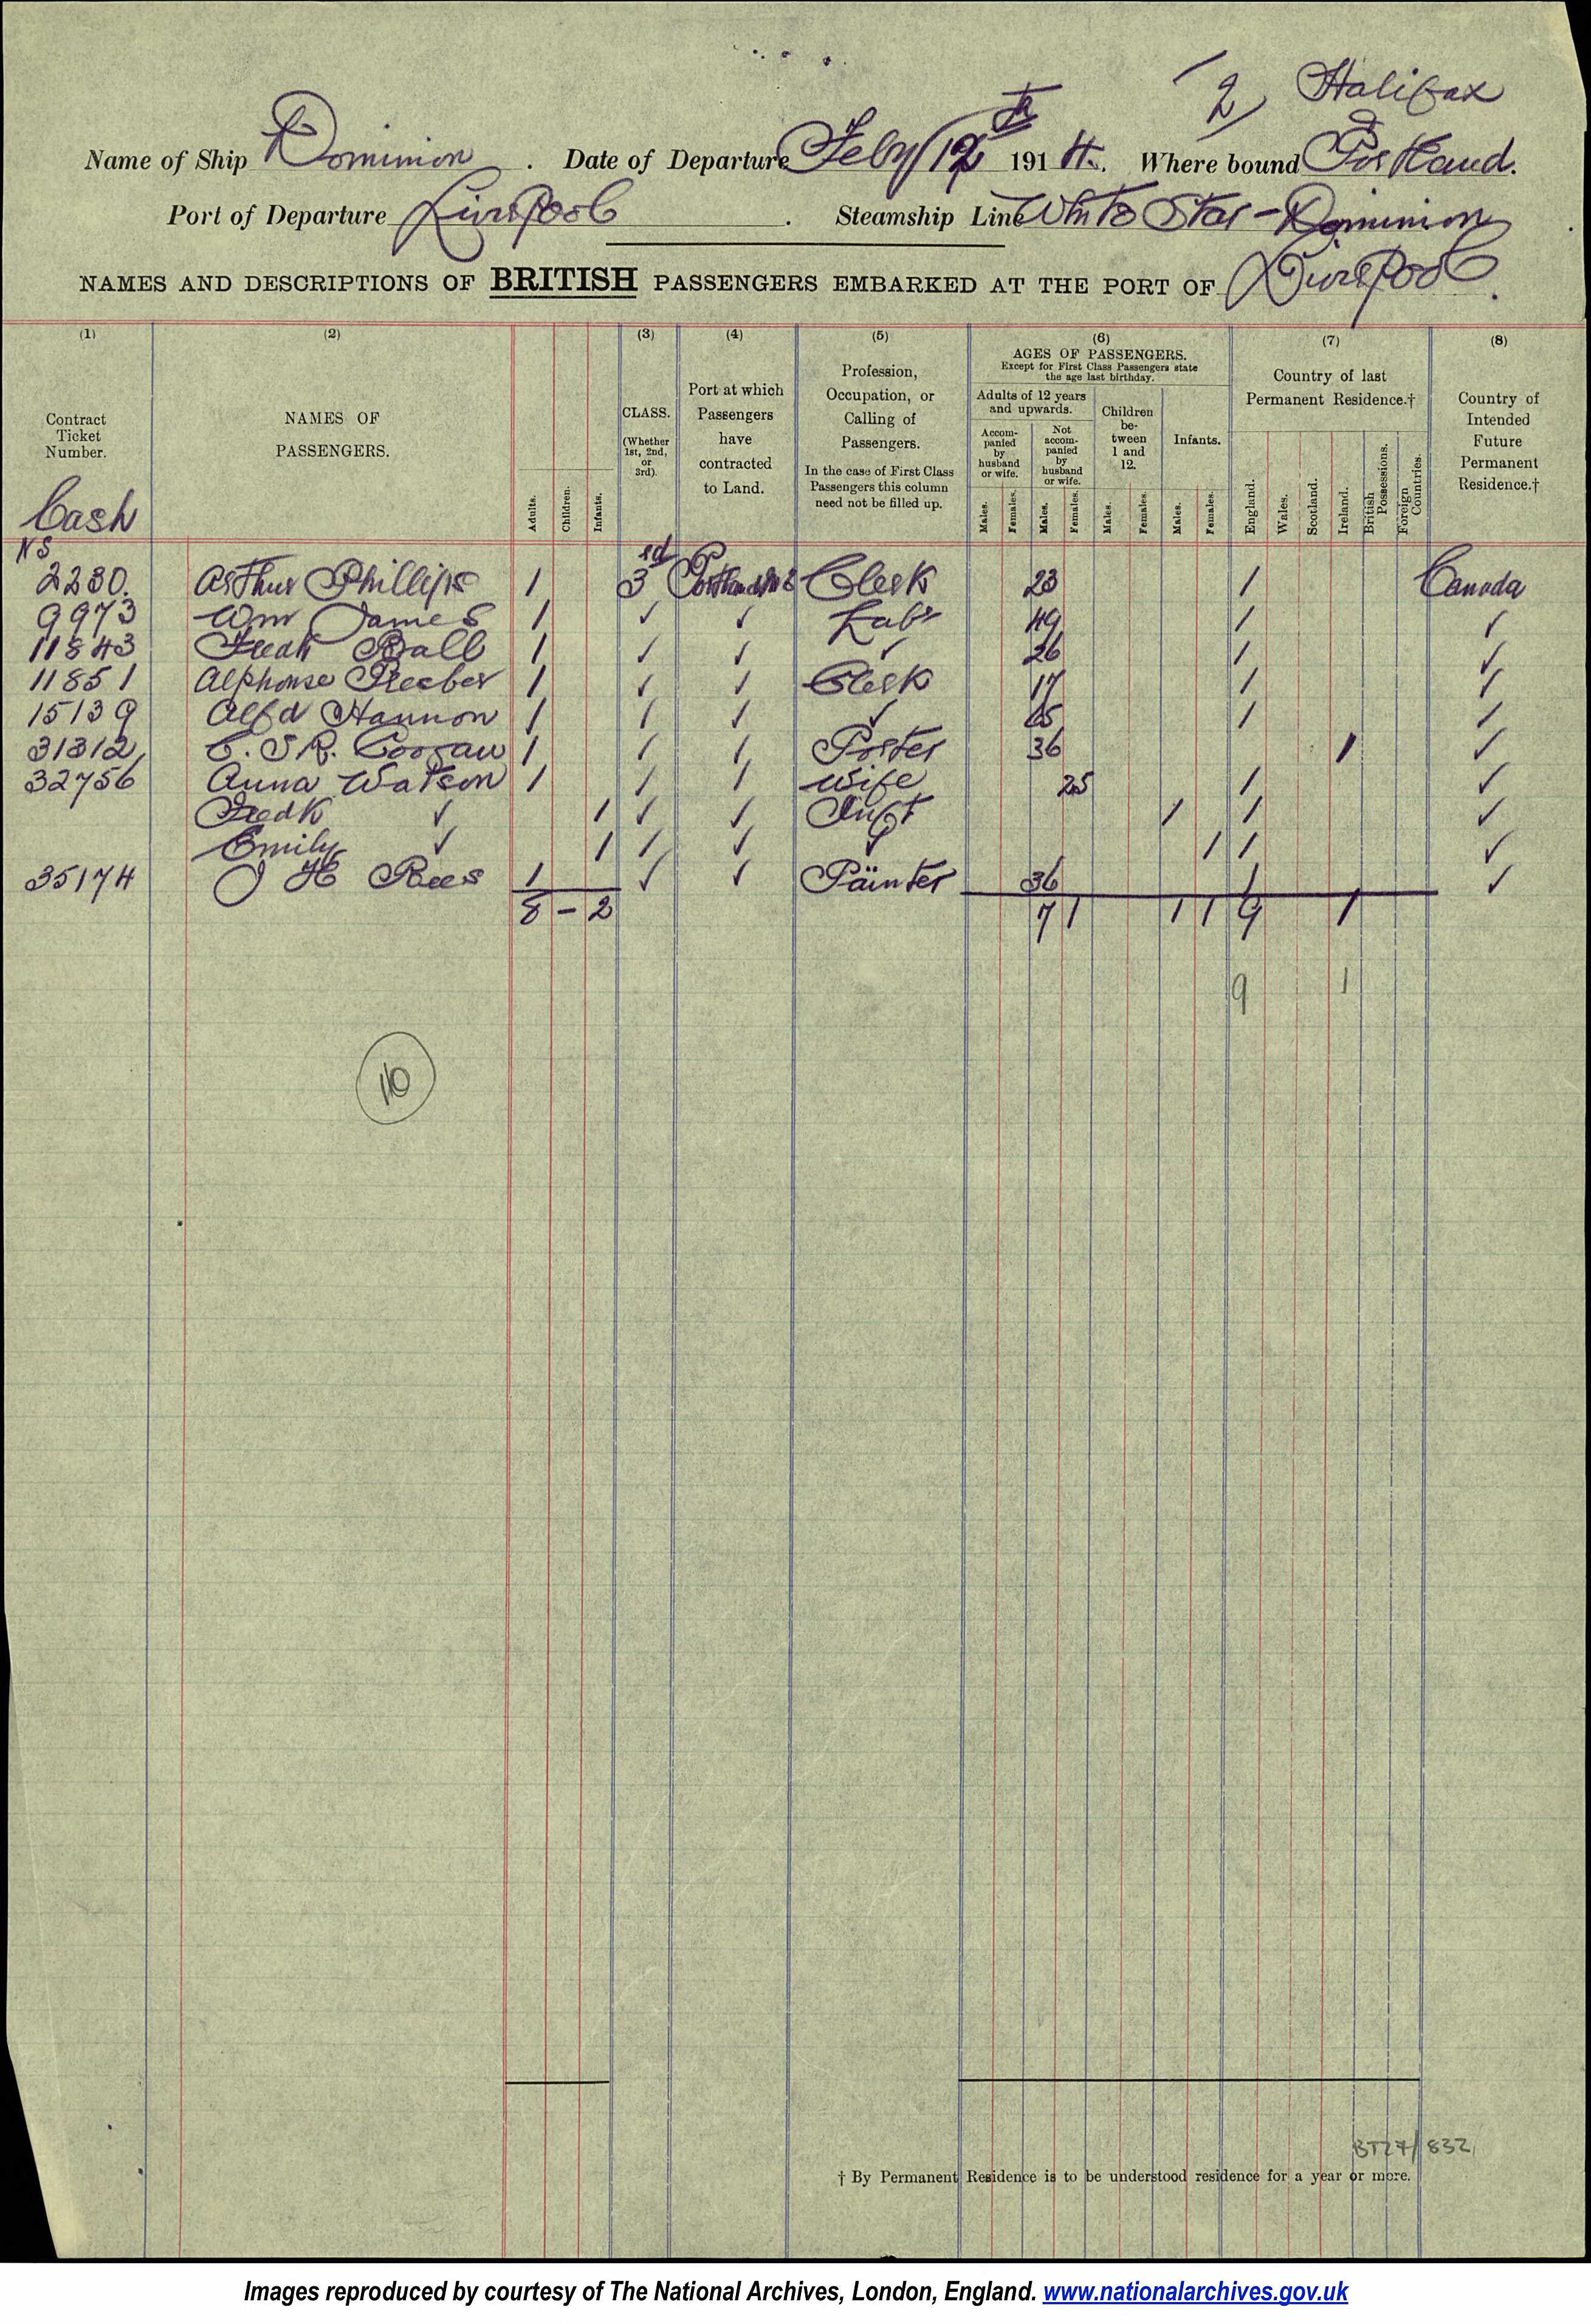 2 Halifax
&
Name of Ship Dominion . Date of Departure Feby 12th 1914. Where bound Portland.
Port of Departure Liverpool . Steamship Line White Star - Dominion
NAMES AND DESCRIPTIONS OF BRITISH PASSENGERS EMBARKED AT THE PORT OF Liverpool.
(1) (2) (3) (4) (5) (6) (7) (8)
Contract Ticket Number.
NAMES OF PASSENGERS.
Adults. Children. Infants.
CLASS. (Whether 1st, 2nd, or 3rd).
Port at which Passengers have contracted to Land.
Profession, Occupation, or Calling of Passengers.
In the case of First Class Passengers this column need not be filled up.
AGES OF PASSENGERS.
Except for First Class Passengers state the age last birthday.
Adults of 12 years and upwards.
Accompanied by husband or wife.
Not accompanied by husband or wife.
Children between 1 and 12.
Infants.
Males. Females. Males. Females. Males. Females. Males. Females.
Country of last Permanent Residence.†
England. Wales. Scotland. Ireland. British Possessions. Foreign Countries.
Country of Intended Future Permanent Residence.†
Cash
NS
2230. Arthur Phillips 1 3rd Portland Me Clerk 23 1 Canada
9973 Wm James 1 ✓ ✓ Labr 49 1 ✓
11843 Fredk Ball 1 ✓ ✓ ✓ 26 1 ✓
11851 Alphonse 1 ✓ ✓ Clerk 17 1 ✓
15139 Alfd Hannon 1 ✓ ✓ ✓ 1 ✓
31312 1 ✓ ✓ Porter 36 1 ✓
32756 Anna Watson 1 ✓ ✓ Wife 25 1 ✓
Fredk ✓ 1 ✓ ✓ Inft 1 1 ✓
Emily ✓ 1 ✓ ✓ ✓ 1 1 ✓
35174 J H Rees 1 ✓ ✓ Painter 36 1 ✓
8 - 2 7 1 1 1 9 1
9 1
10
BT27/832
† By Permanent Residence is to be understood residence for a year or more.
Images reproduced by courtesy of The National Archives, London, England. www.nationalarchives.gov.uk